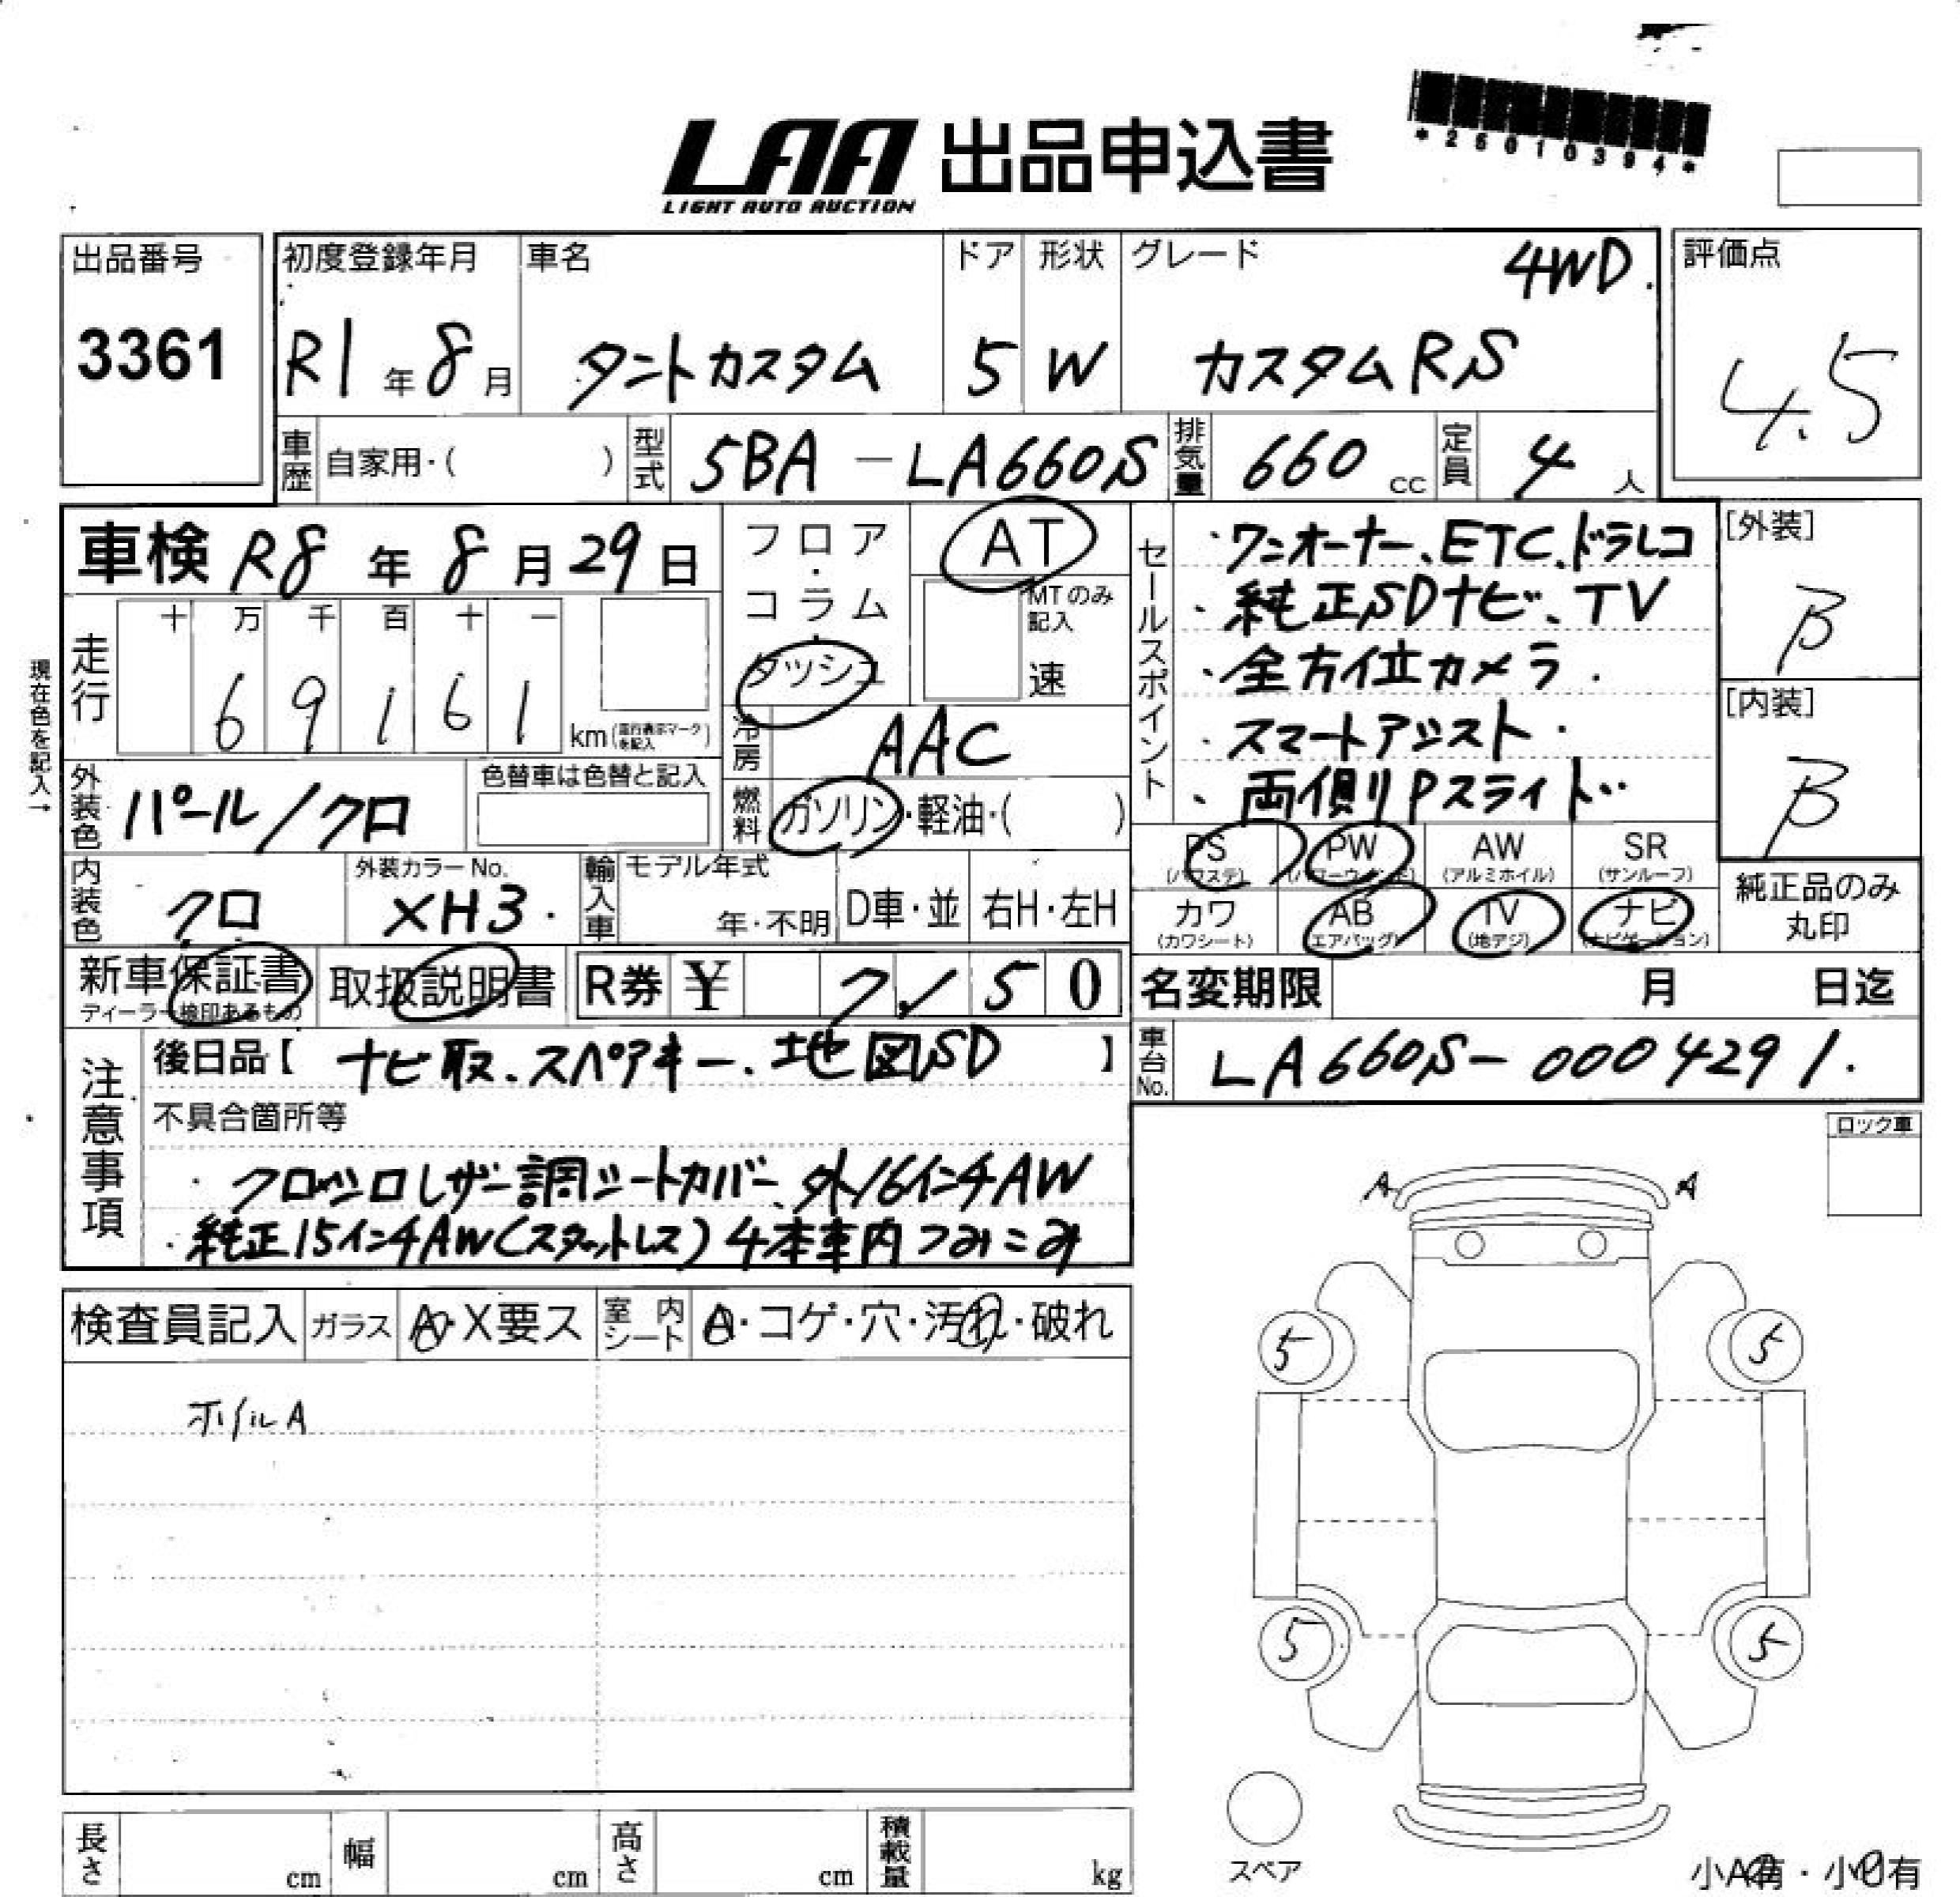 *25010394*
LAA 出品申込書
LIGHT AUTO AUCTION
出品番号
3361
初度登録年月
R1年8月
車名
タントカスタム
ドア
5
形状
W
グレード
4WD.
カスタムRS
評価点
4.5
車歴 自家用・( )
型式 5BA-LA660S
排気量 660 cc
定員 4 人
車検 R8年8月29日
フロア・コラム・ダッシュ
AT
MTのみ記入
速
走行
十 万 千 百 十 一
6 9 1 6 1
km(走行表示マークを記入)
現在色を記入→
冷房 AAC
燃料 ガソリン・軽油・( )
外装色 パール/クロ
色替車は色替と記入
内装色 クロ
外装カラーNo.
XH3.
輸入車
モデル年式
年・不明
D車・並
右H・左H
セールスポイント
・ワンオーナー、ETC、ドラレコ
・純正SDナビ、TV
・全方位カメラ.
・スマートアシスト・
、両側Pスライド・・
[外装]
B
[内装]
B
PS (パワステ)
PW (パワーウインド)
AW (アルミホイル)
SR (サンルーフ)
カワ (カワシート)
AB (エアバッグ)
TV (地デジ)
ナビ (ナビゲーション)
純正品のみ
丸印
新車保証書
ディーラー検印あるもの
取扱説明書
R券 ¥ 7150
名変期限 月 日迄
車台No. LA660S-0004291.
注意事項
後日品【 ナビ取、スペアキー、地図SD 】
不具合箇所等
・クロ×シロレザー調シートカバー、外16インチAW
・純正15インチAW(スタットレス)4本車内つみこみ
ロック車
検査員記入
ガラス A・X要ス
室内シート A・コゲ・穴・汚れ・破れ
ホイルA
A A
5 5
5 5
スペア
小A有・小凹有
長さ cm
幅 cm
高さ cm
積載量 kg